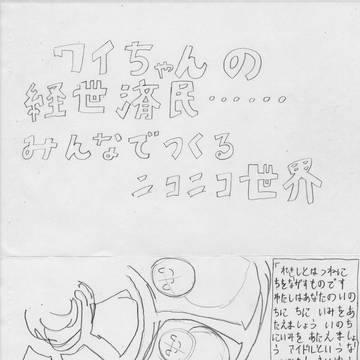 ワイちゃんの
経世済民……
みんなでつくる
ニコニコ世界
「れきしとはつねに
ちをながすものです
わたしはあなたのいの
ちに ちに いみをあ
たえましょう いのち
にいみを あたえましょ
う アイドルというな